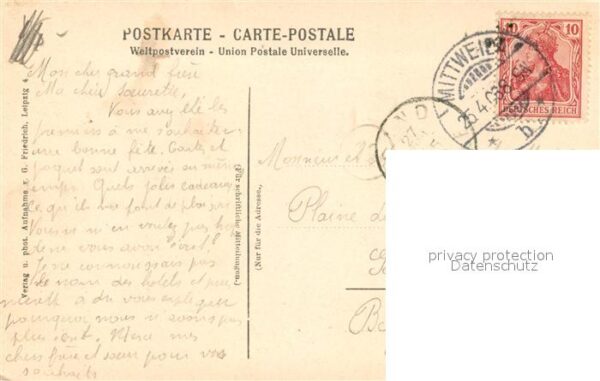 POSTKARTE - CARTE-POSTALE
Weltpostverein - Union Postale Universelle.
Mon cher grand
Ma chère soeurette,
Vous avez été les
premiers à me souhaiter
une bonne fête. Carte et
paquet sont arrivés au même
temps. Quels jolis cadeaux
Ce qu'ils me font de plaisir
Vous ne m'en voulez pas
de ne vous avoir
Je ne connaissais pas
le nom des hôtels et
a dû vous expliquer
pourquoi nous n'avons pas
plus écrit. Merci mes
chers frère et soeur pour vos
souhaits
Verlag u. phot. Aufnahme v. G. Friedrich, Leipzig 4
(Für schriftliche Mitteilungen.)
(Nur für die Adresse.)
MITTWEIDA
25.4.
b
27
10
DEUTSCHES REICH
Monsieur et
Plaine de
privacy protection
Datenschutz